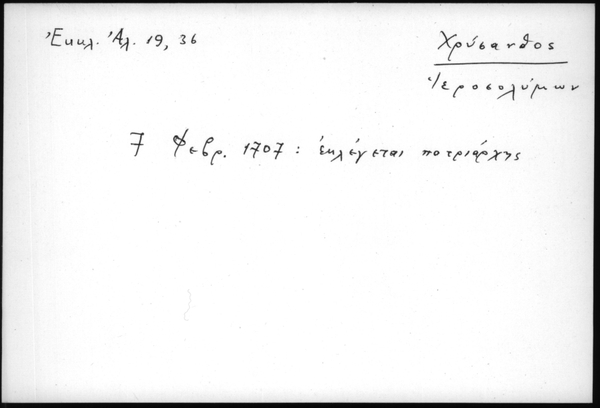 Ἐκκλ. Ἀλ. 19, 36
Χρύσανθος
Ἱεροσολύμων
7 Φεβρ. 1707 : ἐκλέγεται πατριάρχης